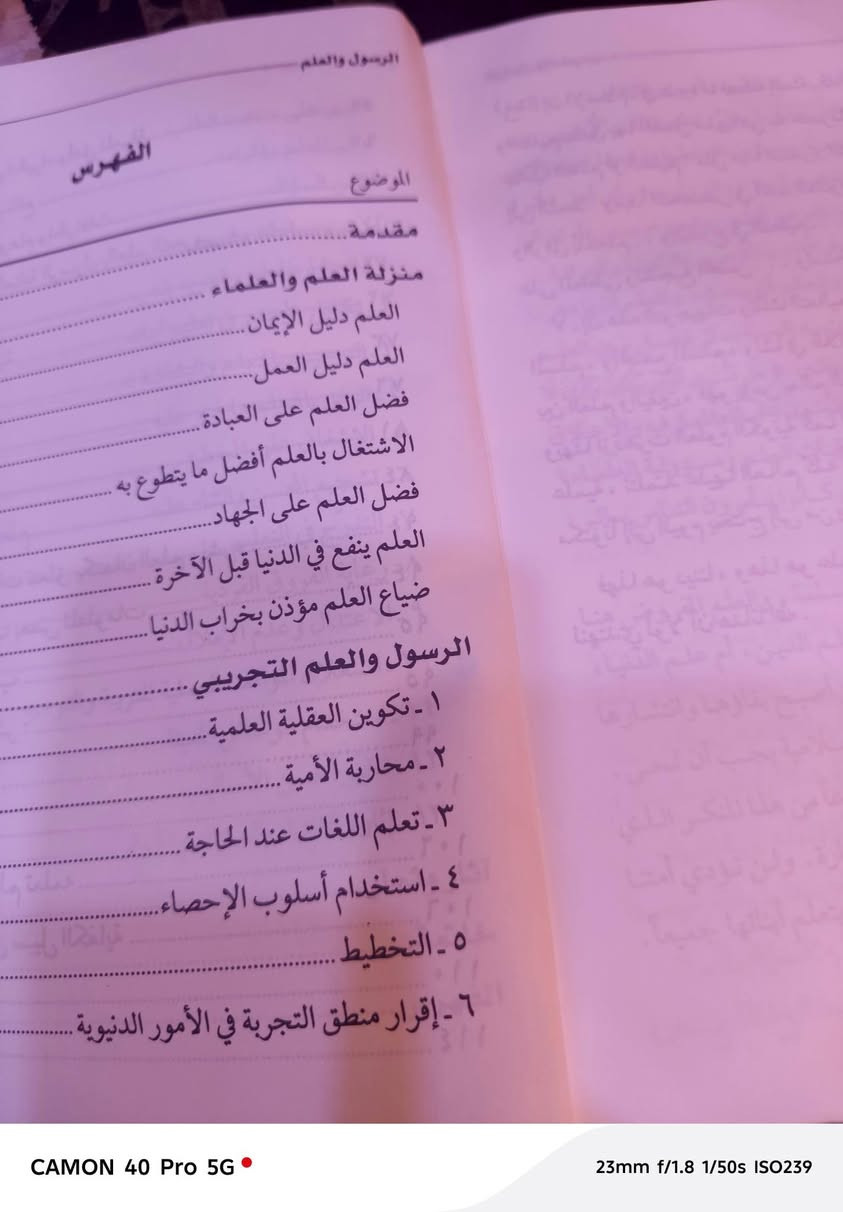 الرسول والعلم
الفهرس
الموضوع
مقدمة
منزلة العلم والعلماء
العلم دليل الإيمان
العلم دليل العمل
فضل العلم على العبادة
الاشتغال بالعلم أفضل ما يتطوع به
فضل العلم على الجهاد
العلم ينفع في الدنيا قبل الآخرة
ضياع العلم مؤذن بخراب الدنيا
الرسول والعلم التجريبي
١ ـ تكوين العقلية العلمية
٢ ـ محاربة الأمية
٣ ـ تعلم اللغات عند الحاجة
٤ ـ استخدام أسلوب الإحصاء
٥ ـ التخطيط
٦ ـ إقرار منطق التجربة في الأمور الدنيوية
CAMON 40 Pro 5G
23mm f/1.8 1/50s ISO239